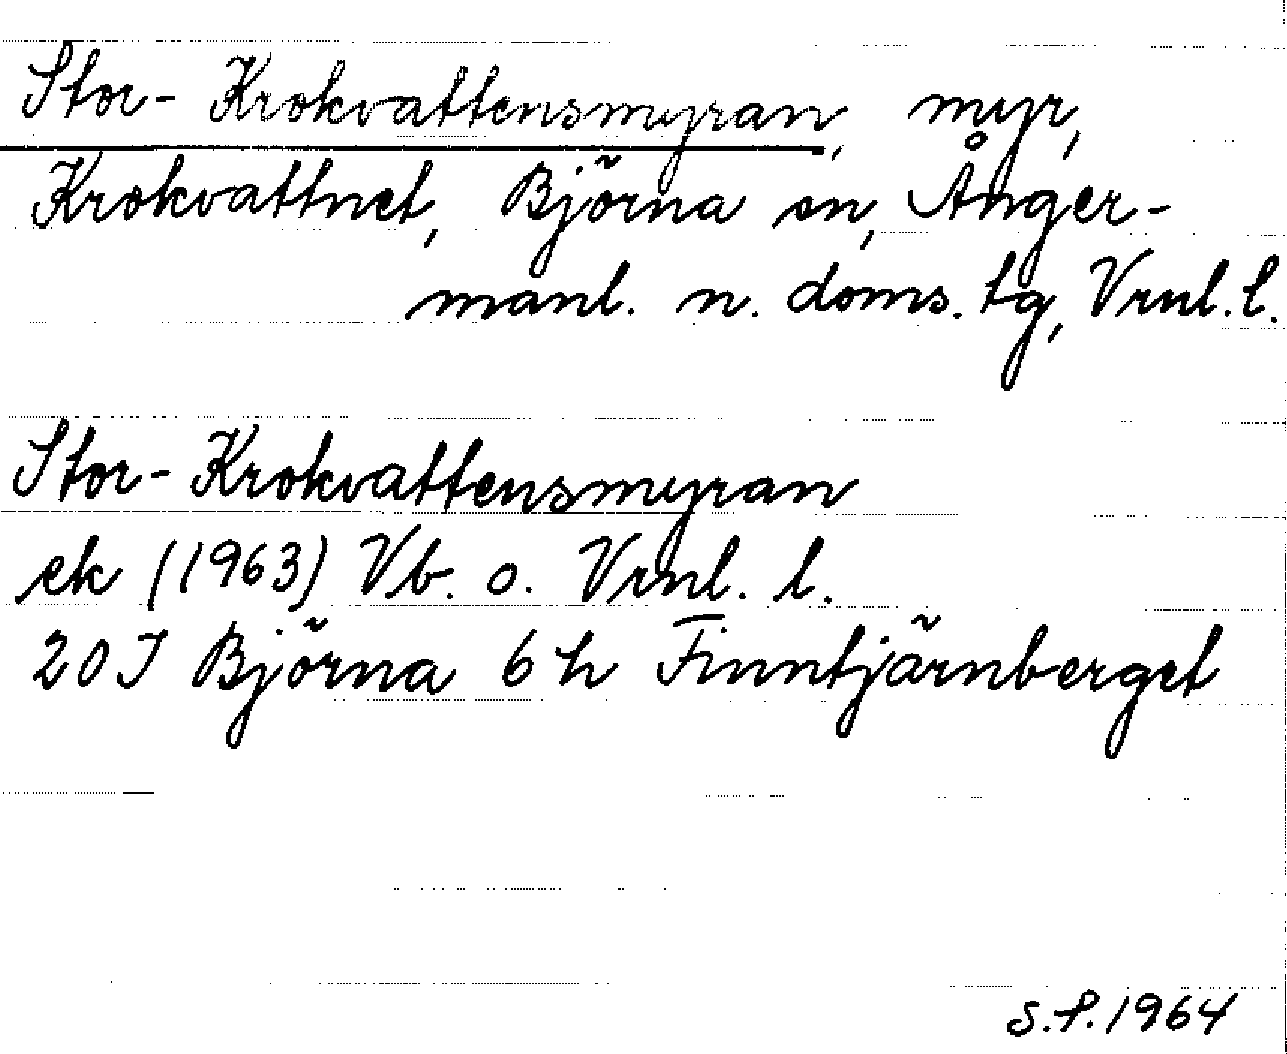 Stor-Krokvattensmyran, myr,
Krokvattnet, Björna sn, Ånger-
manl. n. doms. tg, Vrnl. l.
Stor-Krokvattensmyran
ek (1963) Vb. o. Vrnl. l.
20 J Björna 6 h Finntjärnberget
S.P. 1964